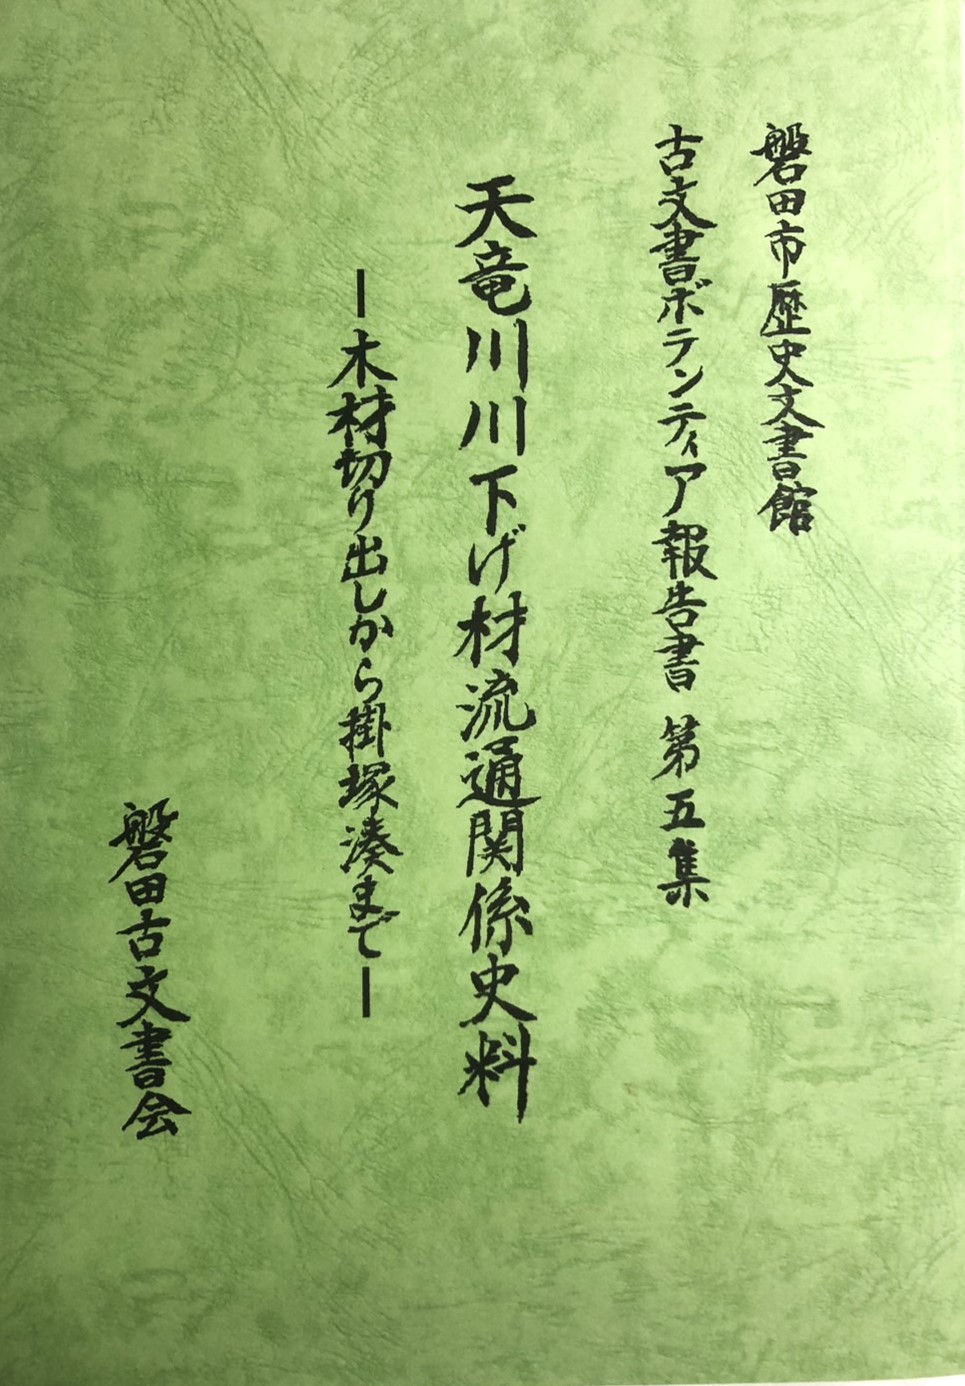 磐田市歴史文書館
古文書ボランティア報告書 第五集
天竜川川下げ材流通関係史料
ー木材切り出しから掛塚湊までー
磐田古文書会